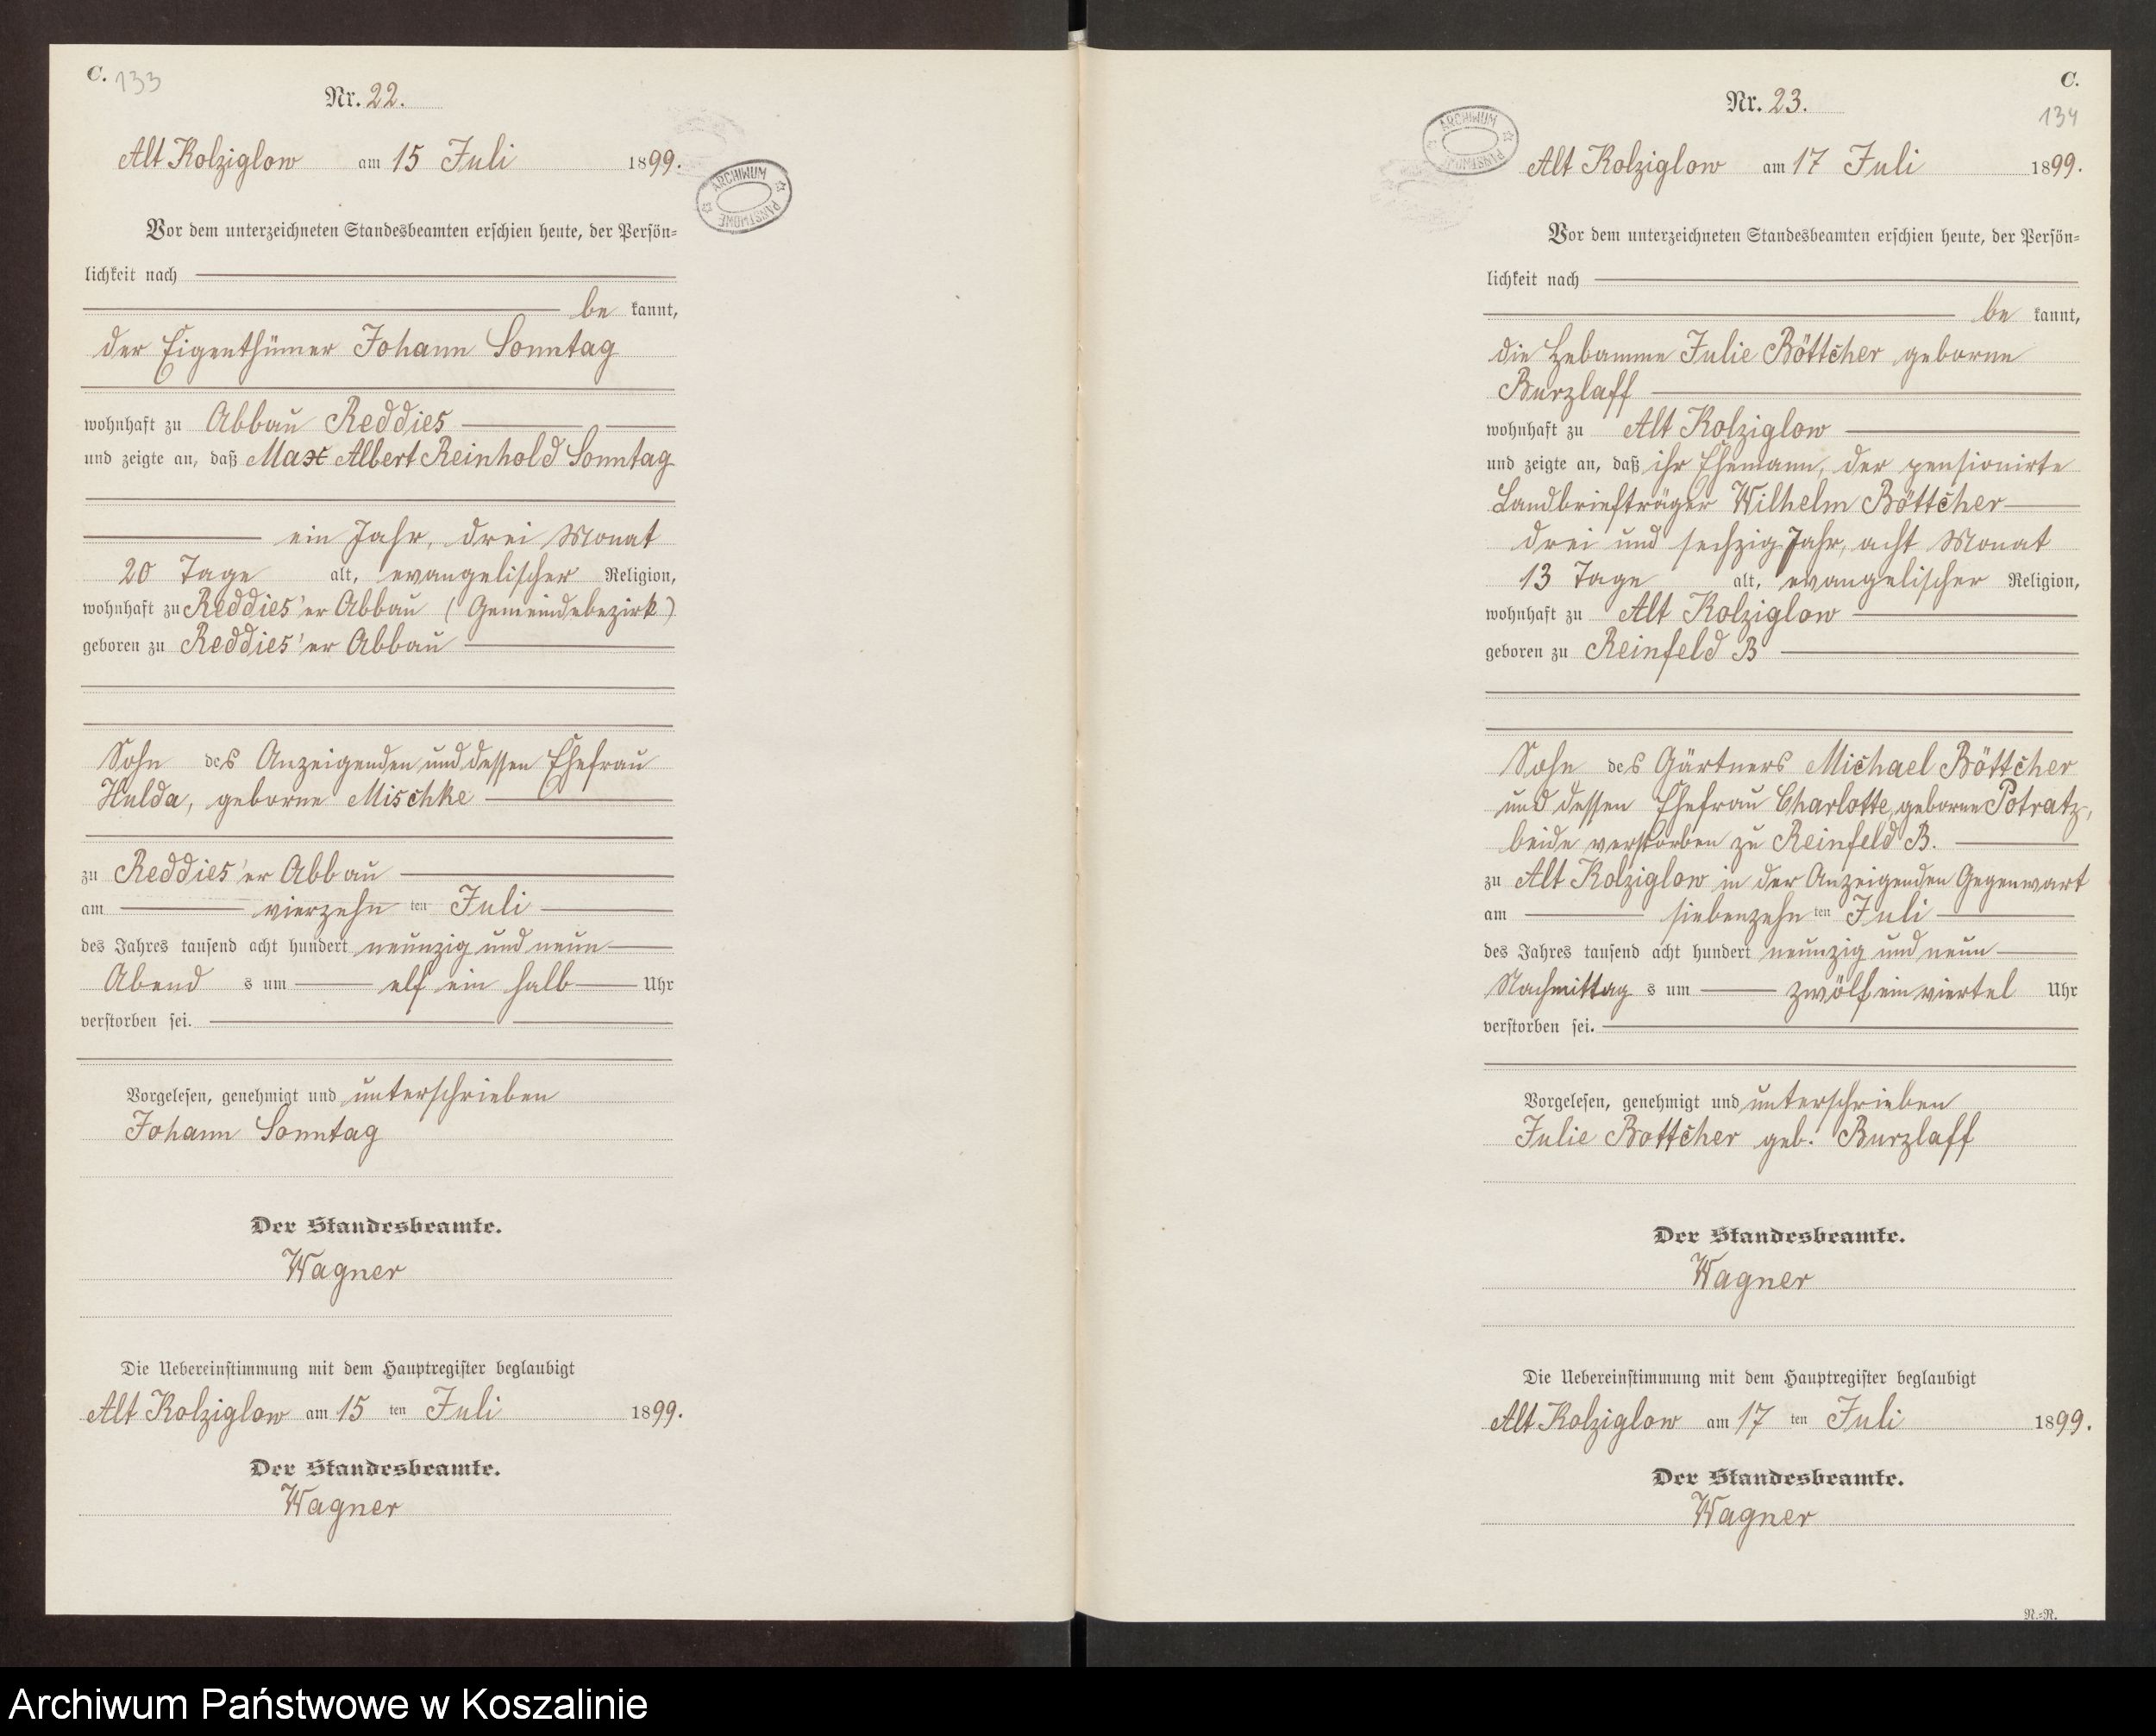 C. 133
Nr. 22.
Alt Kolziglow am 15 Juli 1899.
ARCHIWUM PAŃSTWOWE
Vor dem unterzeichneten Standesbeamten erschien heute, der Persön-
lichkeit nach
be kannt,
der Eigenthümer Johann Sonntag
wohnhaft zu Abbau Reddies
und zeigte an, daß Max Albert Reinhold Sonntag
ein Jahr, drei Monat
20 Tage alt, evangelischer Religion,
wohnhaft zu Reddies'er Abbau (Gemeindebezirk)
geboren zu Reddies'er Abbau
Sohn des Anzeigenden und dessen Ehefrau
Hulda, geborne Mischke
zu Reddies'er Abbau
am vierzehn ten Juli
des Jahres tausend acht hundert neunzig und neun
Abend s um elf ein halb Uhr
verstorben sei.
Vorgelesen, genehmigt und unterschrieben
Johann Sonntag
Der Standesbeamte.
Wagner
Die Uebereinstimmung mit dem Hauptregister beglaubigt
Alt Kolziglow am 15 ten Juli 1899.
Der Standesbeamte.
Wagner
C.
134
Nr. 23.
ARCHIWUM PAŃSTWOWE
Alt Kolziglow am 17 Juli 1899.
Vor dem unterzeichneten Standesbeamten erschien heute, der Persön-
lichkeit nach
be kannt,
die Hebamme Julie Böttcher geborne
Burzlaff
wohnhaft zu Alt Kolziglow
und zeigte an, daß ihr Ehemann, der pensionirte
Landbriefträger Wilhelm Böttcher
drei und sechzig Jahr, acht Monat
13 Tage alt, evangelischer Religion,
wohnhaft zu Alt Kolziglow
geboren zu Reinfeld B
Sohn des Gärtners Michael Böttcher
und dessen Ehefrau Charlotte, geborne Potratz,
beide verstorben zu Reinfeld B.
zu Alt Kolziglow in der Anzeigenden Gegenwart
am siebenzehn ten Juli
des Jahres tausend acht hundert neunzig und neun
Nachmittag s um zwölf ein viertel Uhr
verstorben sei.
Vorgelesen, genehmigt und unterschrieben
Julie Bottcher geb. Burzlaff
Der Standesbeamte.
Wagner
Die Uebereinstimmung mit dem Hauptregister beglaubigt
Alt Kolziglow am 17 ten Juli 1899.
Der Standesbeamte.
Wagner
R.-R.
Archiwum Państwowe w Koszalinie